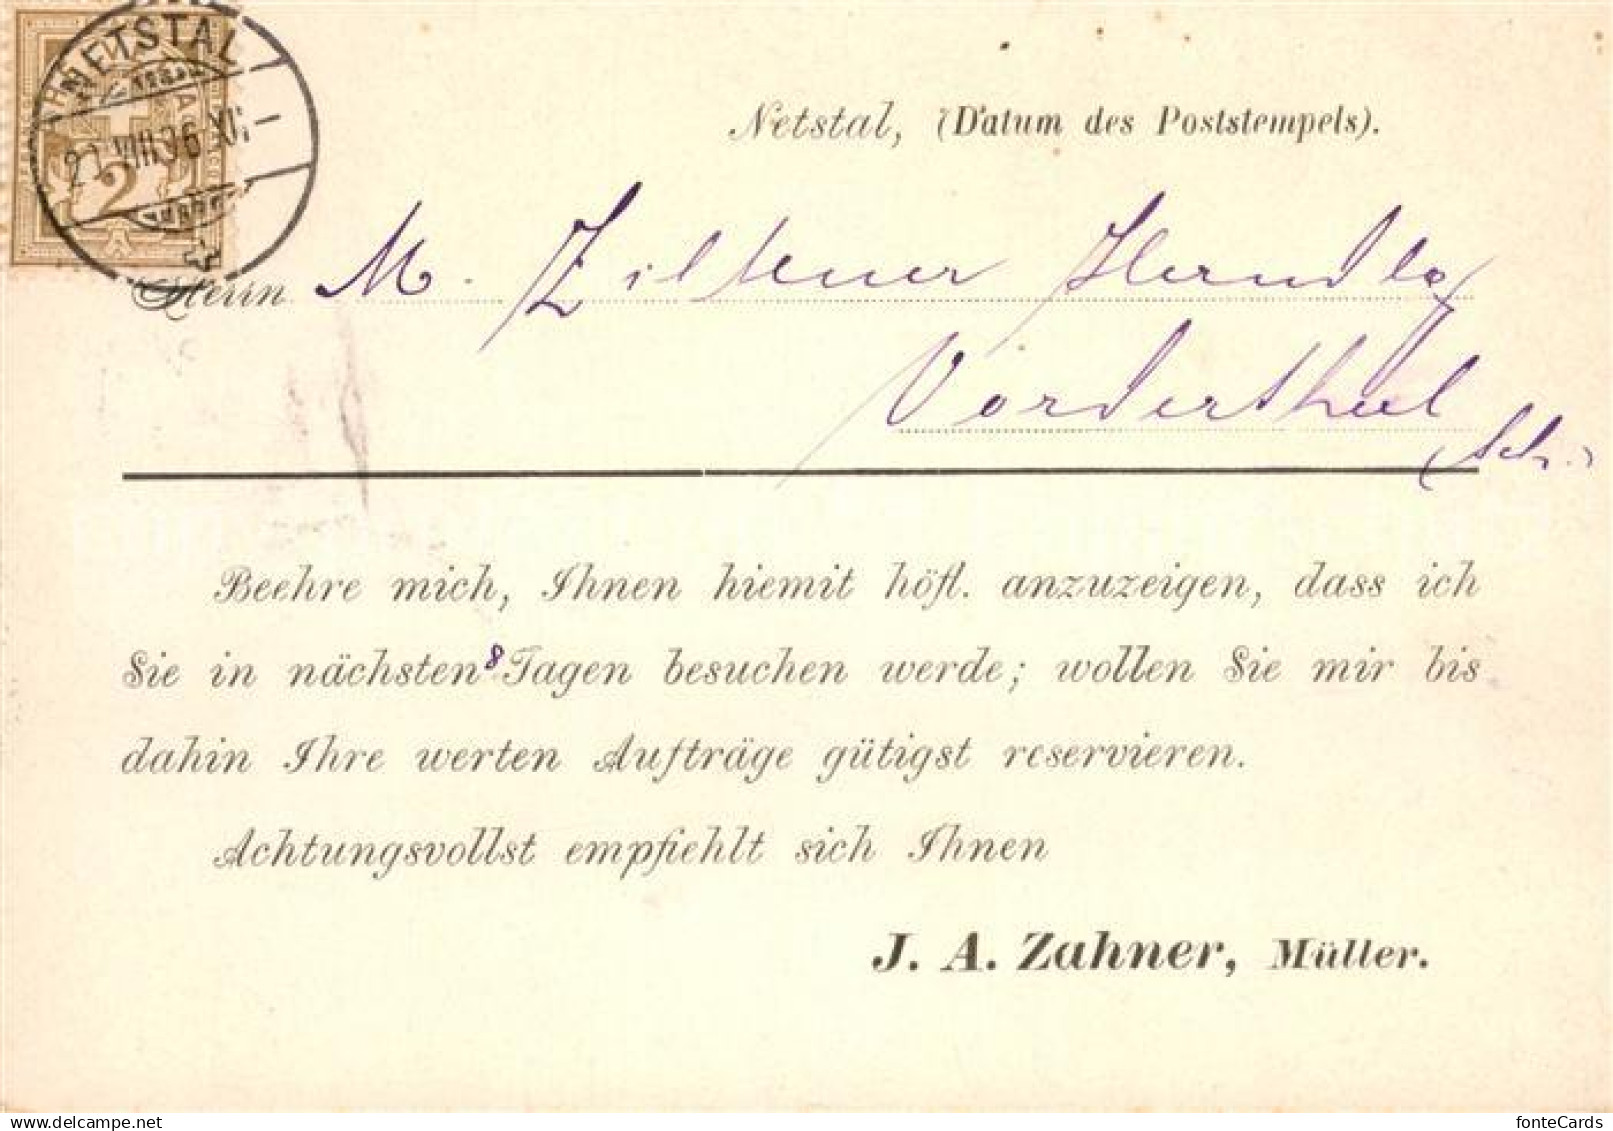 NETSTAL
21.VIII.96.XI-
2
Netstal, (Datum des Poststempels).
Herrn M. Ziltener Handlg
Vorderthal
(Sch.)
Beehre mich, Ihnen hiemit höfl. anzuzeigen, dass ich
Sie in nächsten 8 Tagen besuchen werde; wollen Sie mir bis
dahin Ihre werten Aufträge gütigst reservieren.
Achtungsvollst empfiehlt sich Ihnen
J. A. Zahner, Müller.
www.delcampe.net
fonteCards